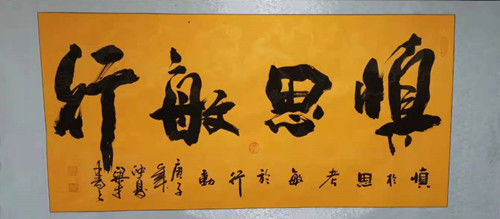 慎思敏行
慎於思者敏於行動
庚子年仲夏